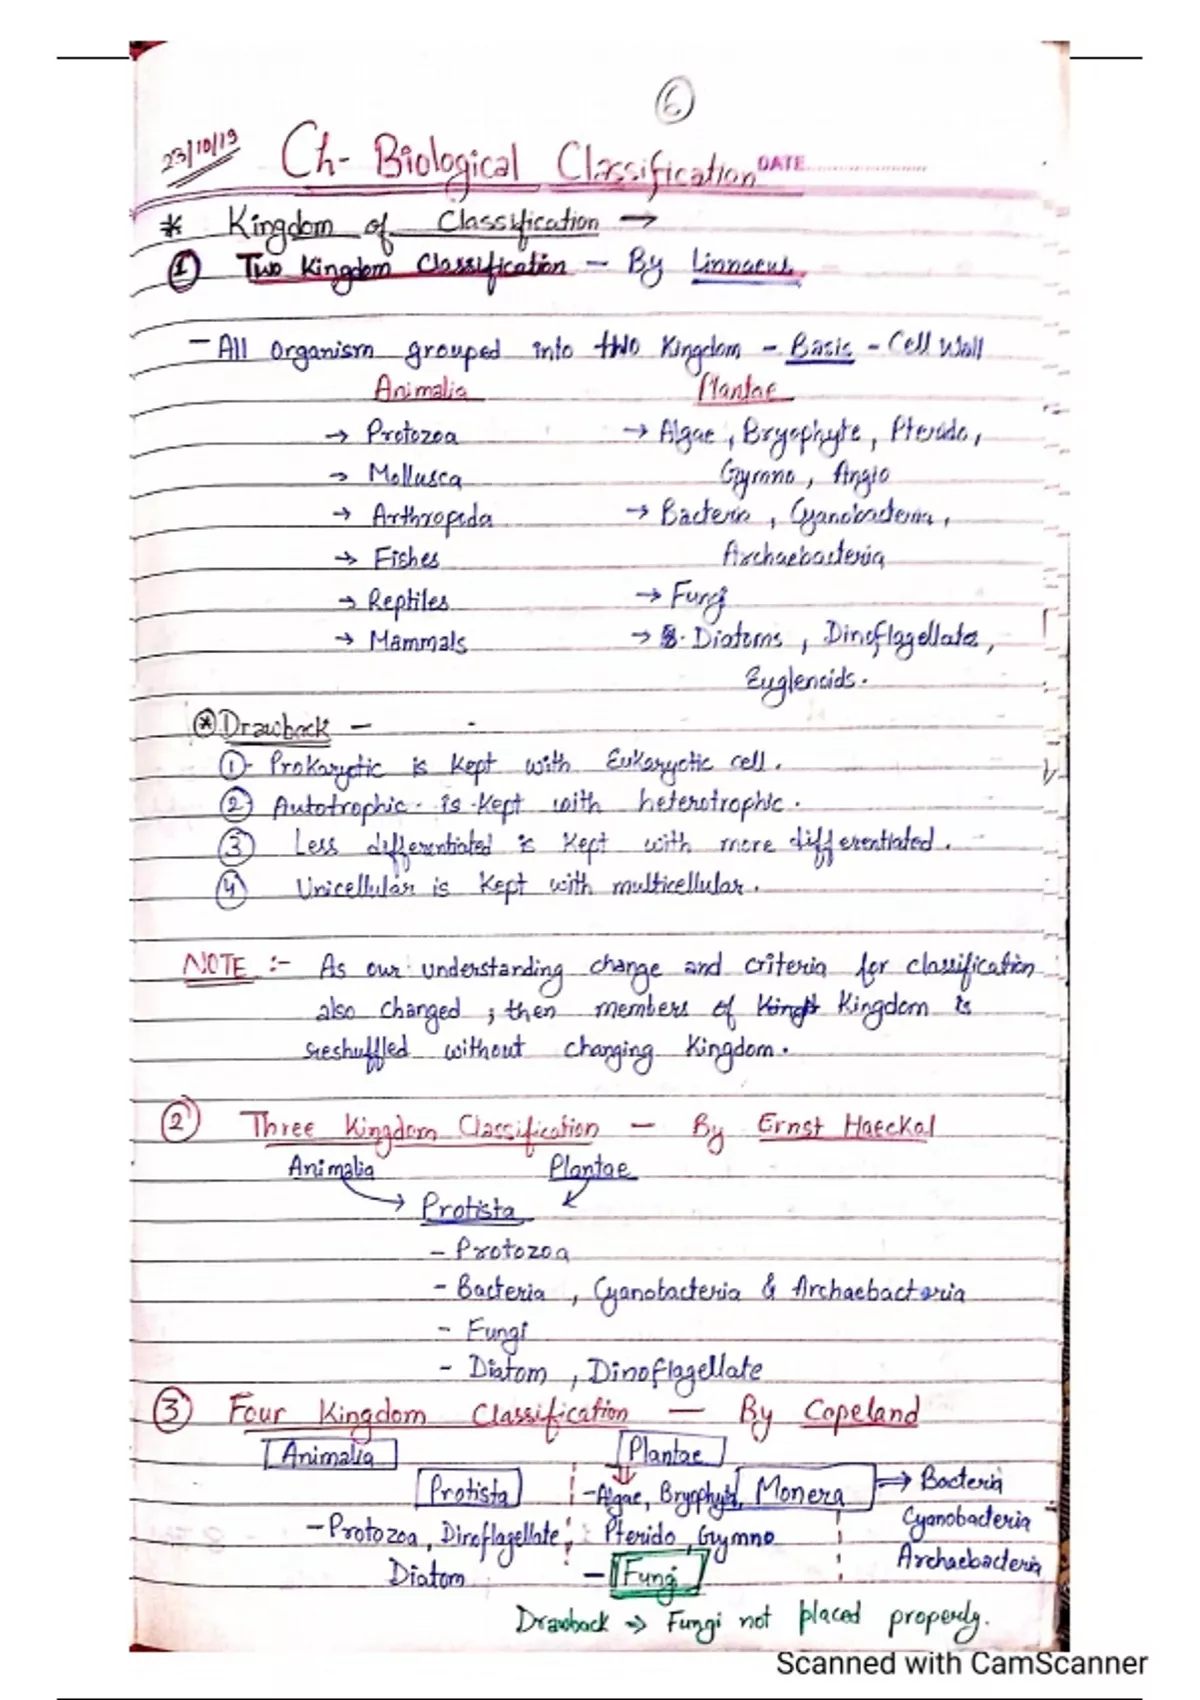 6
23/10/19 Ch- Biological Classification DATE
* Kingdom of Classification →
① Two Kingdom Classification - By Linnaeus
- All Organism grouped into two Kingdom - Basis - Cell Wall
Animalia Plantae
→ Protozoa → Algae, Bryophyte, Pterido,
→ Mollusca Gymno, Angio
→ Arthropoda → Bacteria, Cyanobacteria,
→ Fishes Archaebacteria
→ Reptiles → Fungi
→ Mammals → Diatoms, Dinoflagellates,
Euglenoids.
* Drawback -
①- Prokaryotic is Kept with Eukaryotic cell.
② Autotrophic is Kept with heterotrophic.
③ Less differentiated is Kept with more differentiated.
④ Unicellular is Kept with multicellular.
NOTE :- As our understanding change and criteria for classification
also changed, then members of Kingdom is
reshuffled without changing Kingdom.
② Three Kingdom Classification - By Ernst Haeckal
Animalia Plantae
→ Protista
- Protozoa
- Bacteria, Cyanobacteria & Archaebactaria
- Fungi
- Diatom, Dinoflagellate
③ Four Kingdom Classification - By Copeland
Animalia Plantae
Protista - Algae, Bryophyta, Monera ⇒ Bacteria
- Protozoa, Dinoflagellate, Pterido, Gymno Cyanobacteria
Diatom - Fungi Archaebacteria
Drawback → Fungi not placed properly.
Scanned with CamScanner